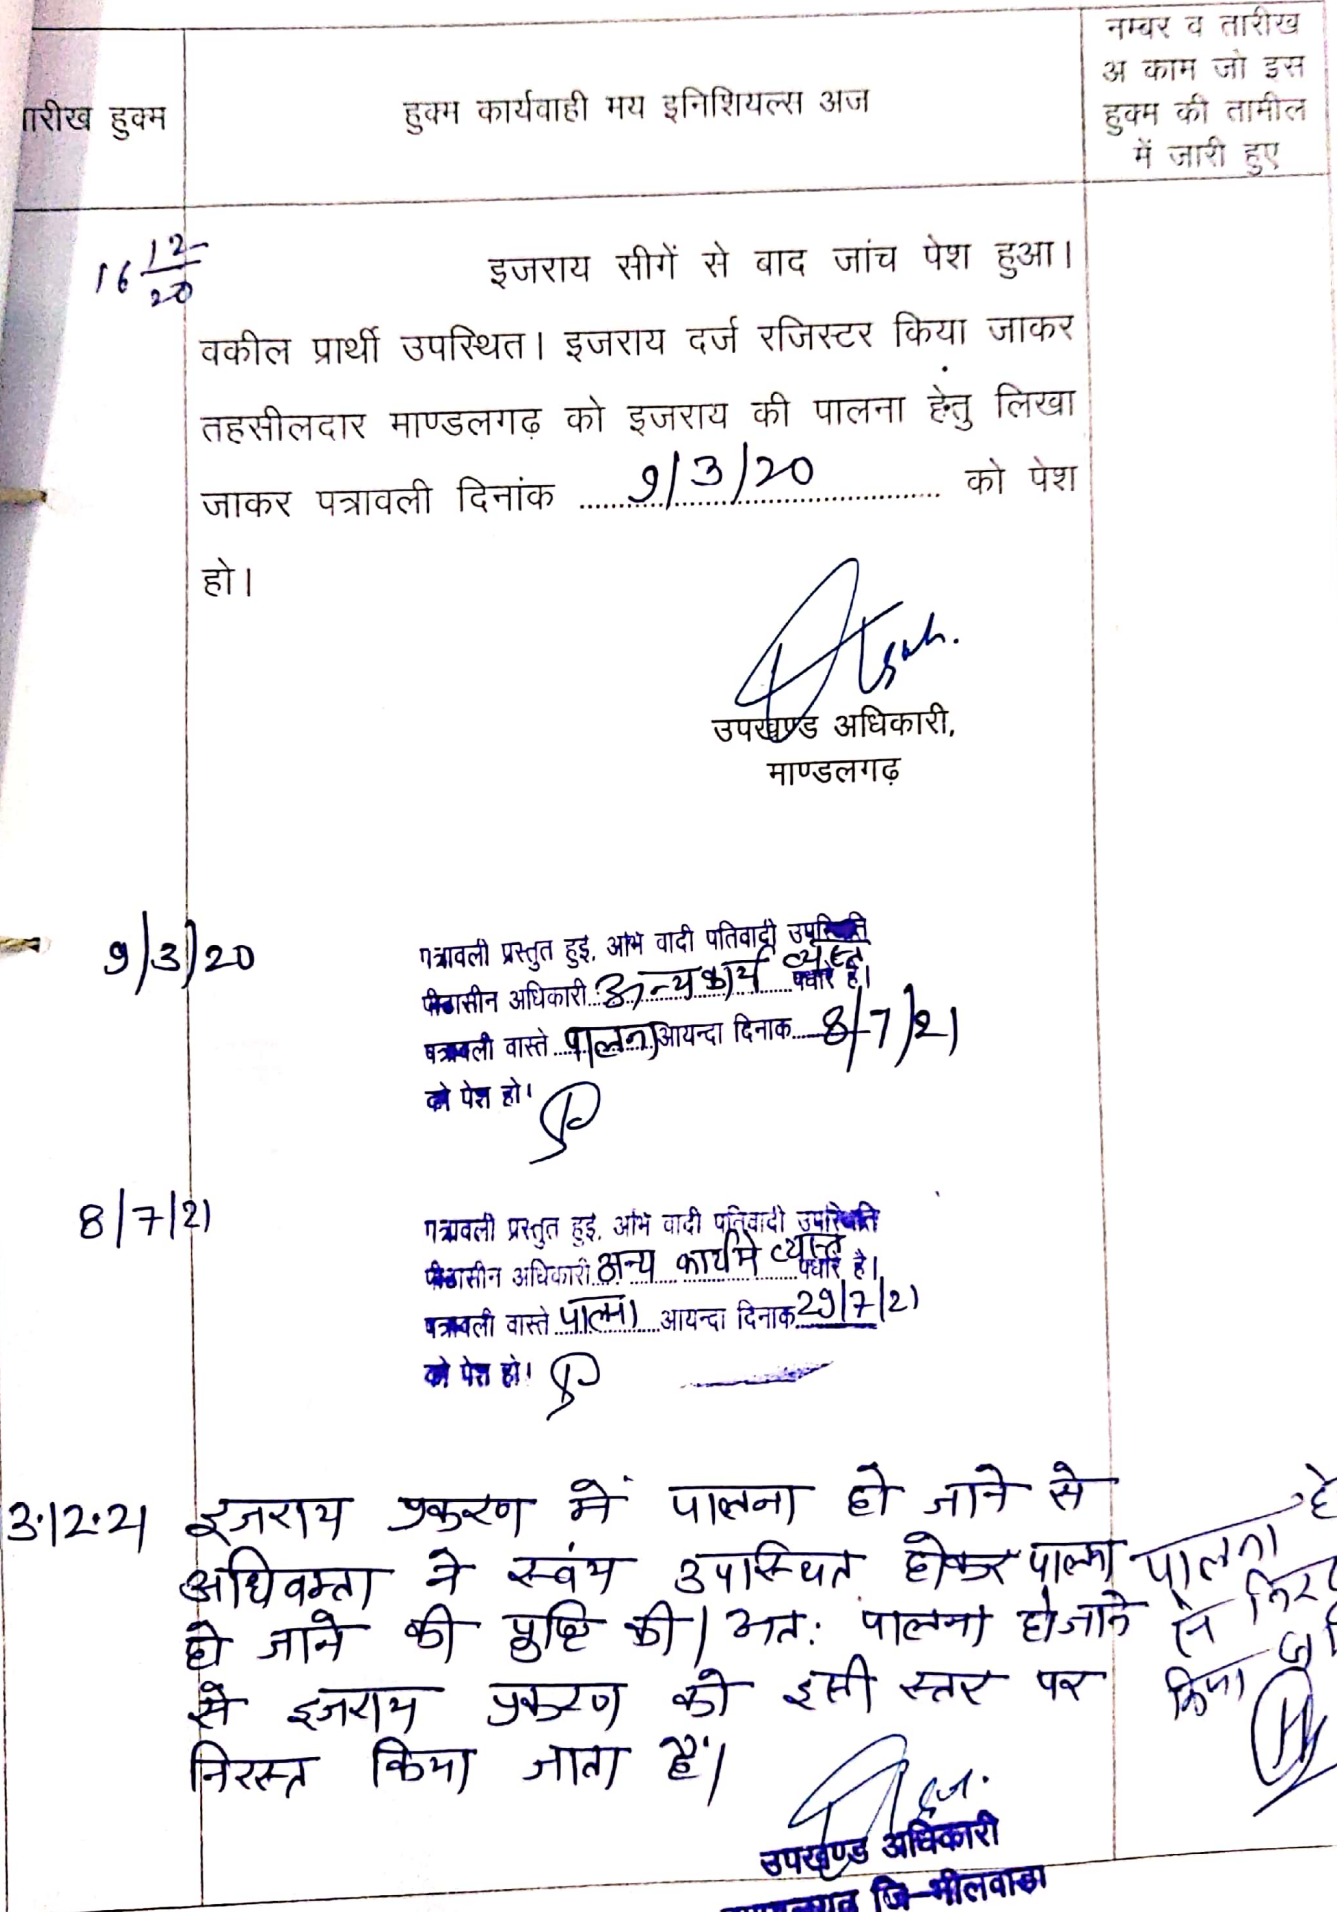 तारीख हुक्म
हुक्म कार्यवाही मय इनिशियल्स अज
नम्बर व तारीख
अ काम जो इस
हुक्म की तामील
में जारी हुए
16 12/20
इजराय सीगें से बाद जांच पेश हुआ।
वकील प्रार्थी उपस्थित। इजराय दर्ज रजिस्टर किया जाकर
तहसीलदार माण्डलगढ़ को इजराय की पालना हेतु लिखा
जाकर पत्रावली दिनांक 9/3/20 को पेश
हो।
उपखण्ड अधिकारी,
माण्डलगढ़
9/3/20
पत्रावली प्रस्तुत हुई, अभि वादी पतिवादी उपस्थिति
पीठासीन अधिकारी अन्य कार्य व्यस्त पधारे है।
पत्रावली वास्ते पालना आयन्दा दिनाक 8/7/21
को पेश हो।
8/7/21
पत्रावली प्रस्तुत हुई, अभि वादी पतिवादी उपस्थिति
पीठासीन अधिकारी अन्य कार्य मे व्यस्त पधारे है।
पत्रावली वास्ते पालना आयन्दा दिनाक 29/7/21
को पेश हो।
3.12.21 इजराय प्रकरण में पालना हो जाने से
अधिवक्ता ने स्वंय उपस्थित होकर पालना
हो जाने की पुष्टि की। अतः पालना हो जाने
से इजराय प्रकरण को इसी स्तर पर
निरस्त किया जाता है।
पालना हो
किया
उपखण्ड अधिकारी
जि-भीलवाडा